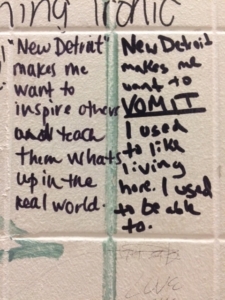 ning Ironic
"New Detroit"
makes me
want to
inspire others
and teach
them whats
up in the
real world.
New Detroit
makes me
want to
VOMIT
I used
to like
living
here. I used
to be able
to.